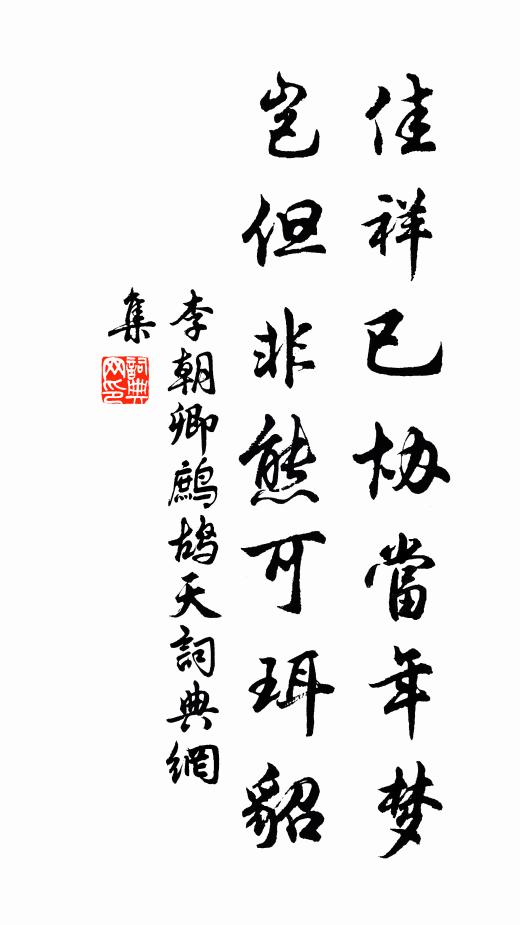 佳祥已协當年梦
岂但非熊可珥貂
李朝卿鹧鸪天詞典網
集
詞典
网印